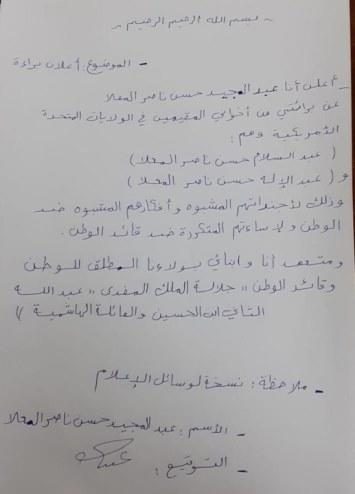 ~ بسم الله الرحيم الرحيم ~
- الموضوع: أعلان براءة
- أعلن أنا عبد المجيد حسن ناصر المعلا
عن برائتي من أخواني المقيمين في الولايات المتحدة
الأمريكية وهم:
( عبد السلام حسن ناصر المعلا )
و ( عبد الإله حسن ناصر المعلا )
وذلك لأجنداتهم المشبوه وأفكارهم المشبوه ضد
الوطن ولإساءتهم المتكررة ضد قائد الوطن.
ومتعهد أنا وابنائي بولاءنا المطلق للوطن
وقائد الوطن " جلالة الملك المفدى " عبد الله
الثاني ابن الحسين والعائلة الهاشمية ))
- ملاحظة: نسخة لوسائل الإعلام
- الأسم: عبد المجيد حسن ناصر المعلا
- التوقيع: